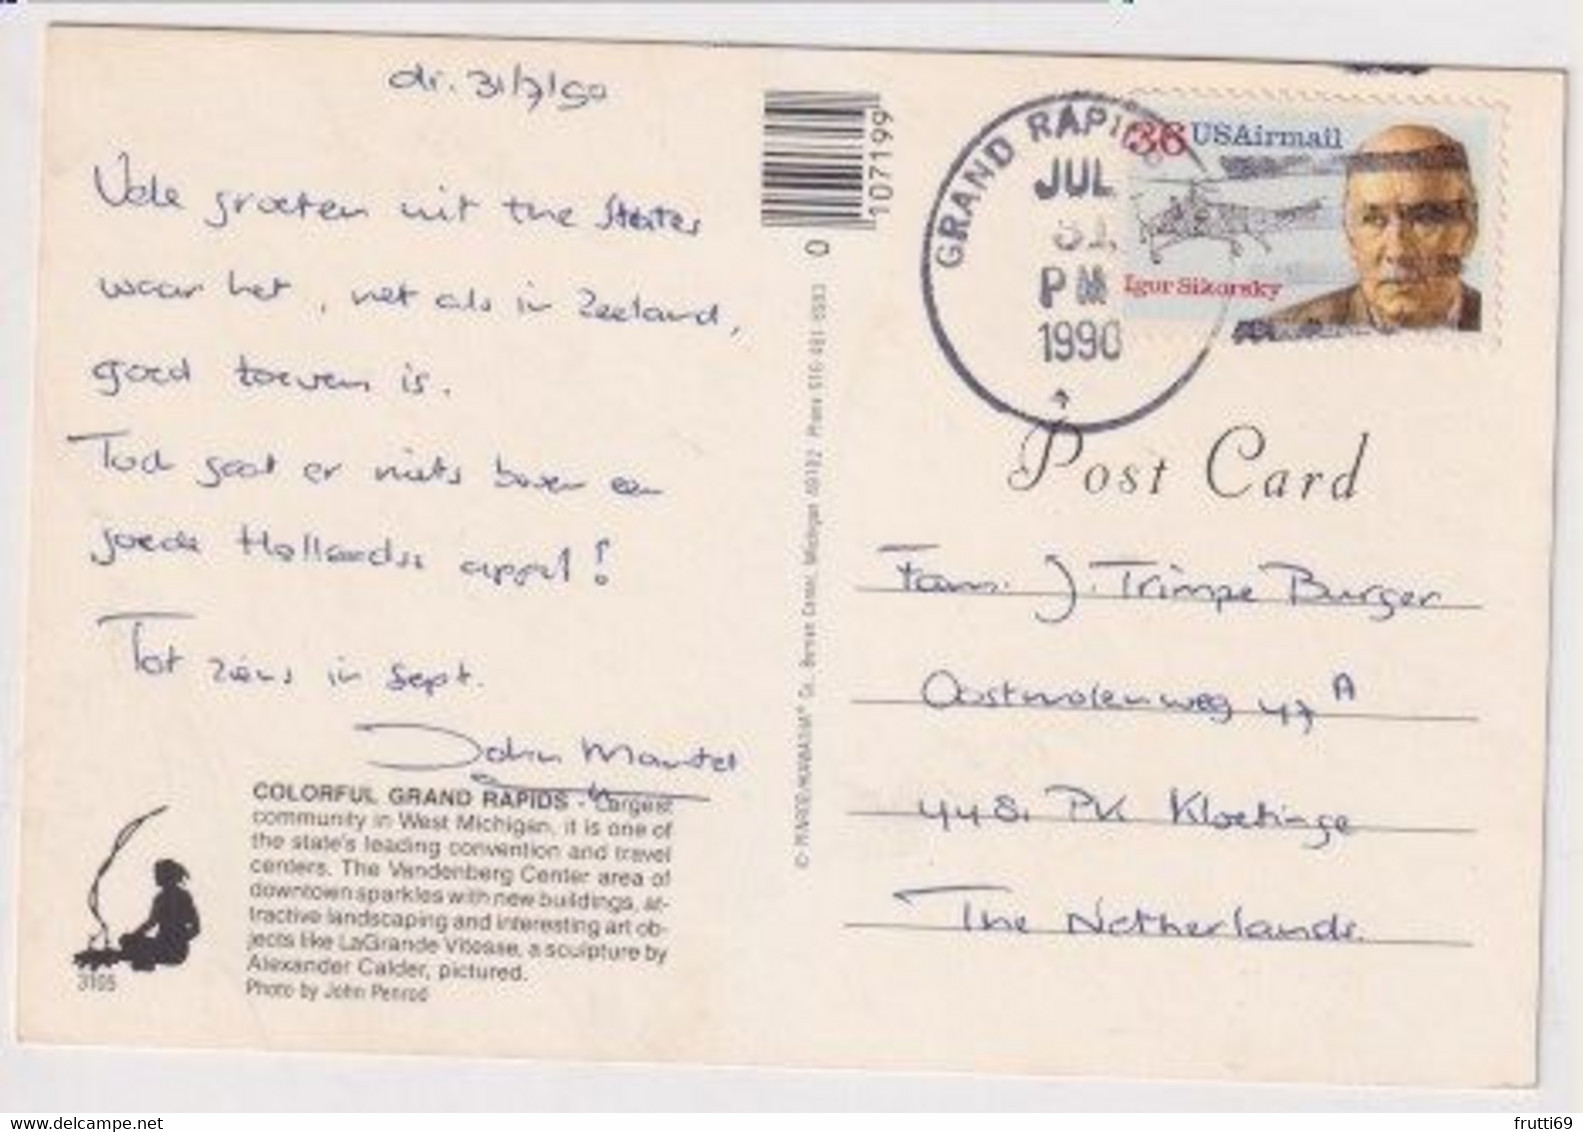 dr. 31/7/90
Vele groeten uit the States
waar het, net als in Zeeland,
goed toeven is.
Toch gaat er niets boven een
goede Hollandse appel!
Tot ziens in Sept.
John Mantel
COLORFUL GRAND RAPIDS - Largest
community in West Michigan, it is one of
the state's leading convention and travel
centers. The Vandenberg Center area of
downtown sparkles with new buildings, at-
tractive landscaping and interesting art ob-
jects like LaGrande Vitesse, a sculpture by
Alexander Calder, pictured.
Photo by John Penrod
3195
0 107199
© PENROD/HIAWATHA® Co., Berrien Center, Michigan 49102 Phone 616-461-6993
GRAND RAPIDS
JUL
31
PM
1990
36 USAirmail
Igor Sikorsky
Post Card
Fam. J. Trimpe Burger
Oostmolenweg 47 A
4481 PK Kloetinge
The Netherlands.
www.delcampe.net
frutti69